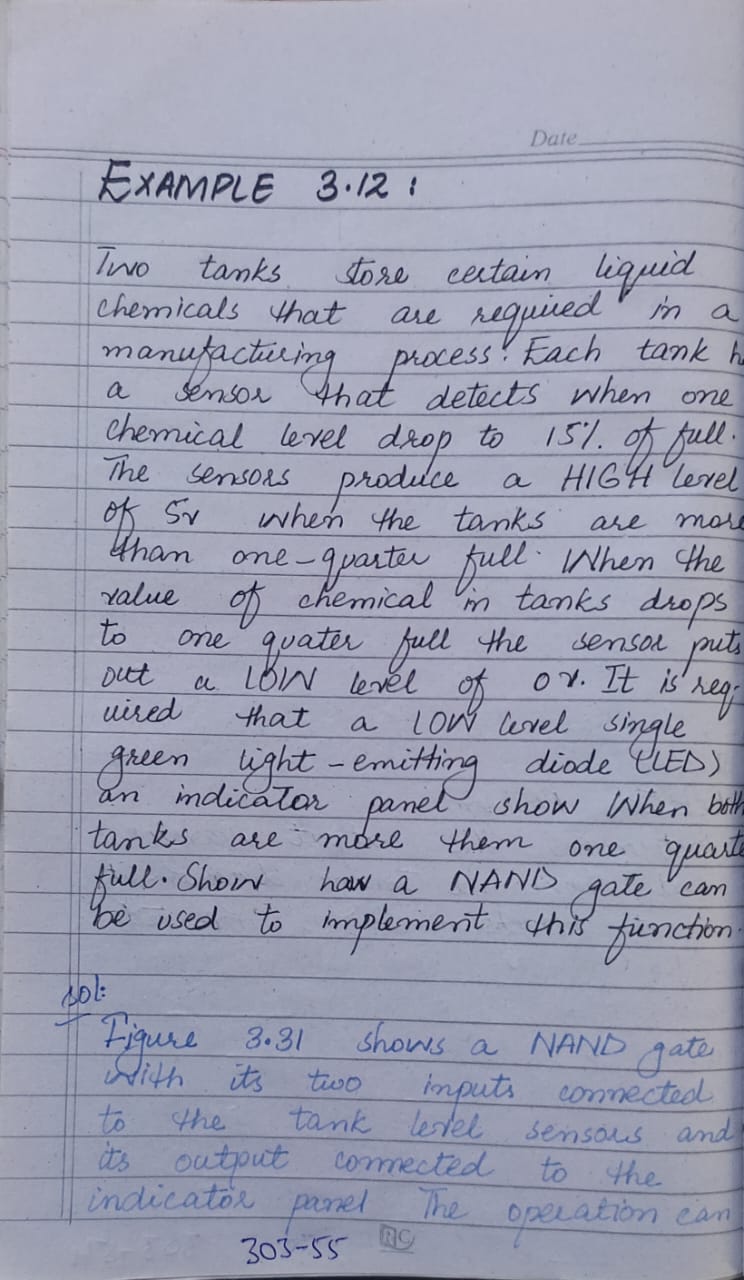 Date
EXAMPLE 3.12 :
Two tanks store certain liquid
chemicals that are required in a
manufacturing process. Each tank h
a sensor that detects when one
chemical level drop to 15% of full.
The sensors produce a HIGH level
of 5v when the tanks are more
than one-quarter full. When the
value of chemical in tanks drops
to one quater full the sensor puts
out a LOW level of 0v. It is req-
uired that a LOW level single
green light-emitting diode (LED)
an indicator panel show When both
tanks are more them one quarte
full. Show how a NAND gate can
be used to implement this function.
sol:
Figure 3.31 shows a NAND gate
with its two inputs connected
to the tank level sensors and
its output connected to the
indicator panel The operation can
303-55
RC